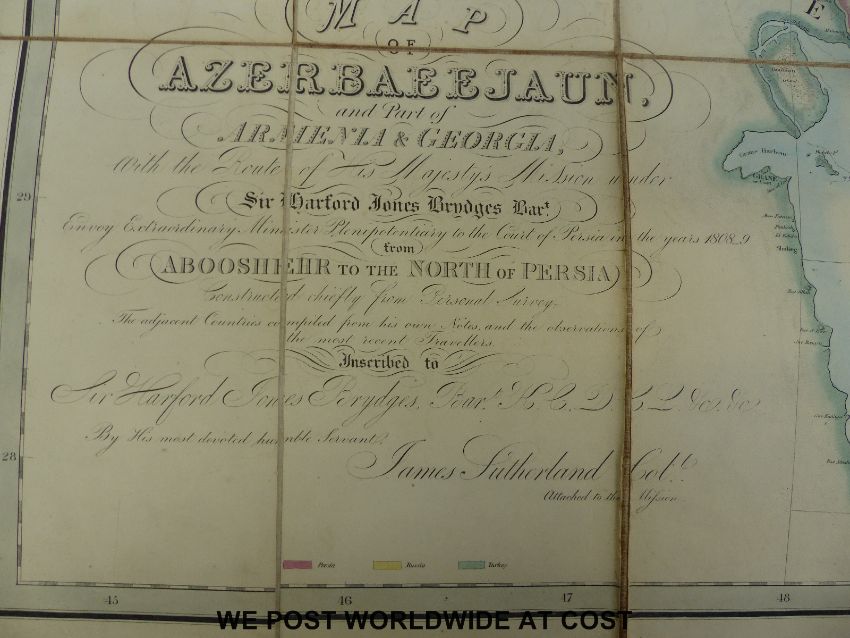 MAP
OF
AZERBAEEJAUN,
and Part of
ARMENIA & GEORGIA,
With the Route of His Majesty's Mission under
Sir Harford Jones Brydges Bart.
Envoy Extraordinary Minister Plenipotentiary to the Court of Persia in the years 1808_9
from
ABOOSHEHR TO THE NORTH OF PERSIA
Constructed chiefly from Personal Survey.
The adjacent Countries compiled from his own Notes, and the observations of
the most recent Travellers.
Inscribed to
Sir Harford Jones Brydges, Bart. K.C. D.C.L. &c. &c.
By His most devoted humble Servant,
James Sutherland Colt.
Attached to the Mission
Persia Russia Turkey
E
GRANE
29
28
45 46 47 48
WE POST WORLDWIDE AT COST